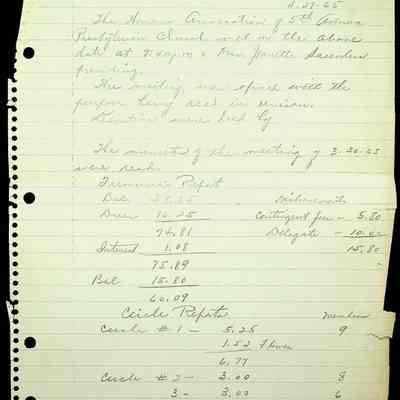 4-27-65
The Women Association of 5th Avenue
Presbyterian Church met on the above
date at 7:40 p.m. Mrs
presiding.
The meeting was opened with the
purpose being read in unison.
Devotion were lead by
The minutes of the meeting of 3-26-65
were read.
Treasurers Report
Bal Disbursements
Dues 16.25 Contingent fee - 5.80
74.81 Delegate - 10.00
Interest 1.08 15.80
75.89
Bal 15.80
60.09
Circle Reports Members
Circle # 1 - 5.25 9
1.52 Flower
6.77
Circle # 2 - 3.00 8
3 - 3.00 6